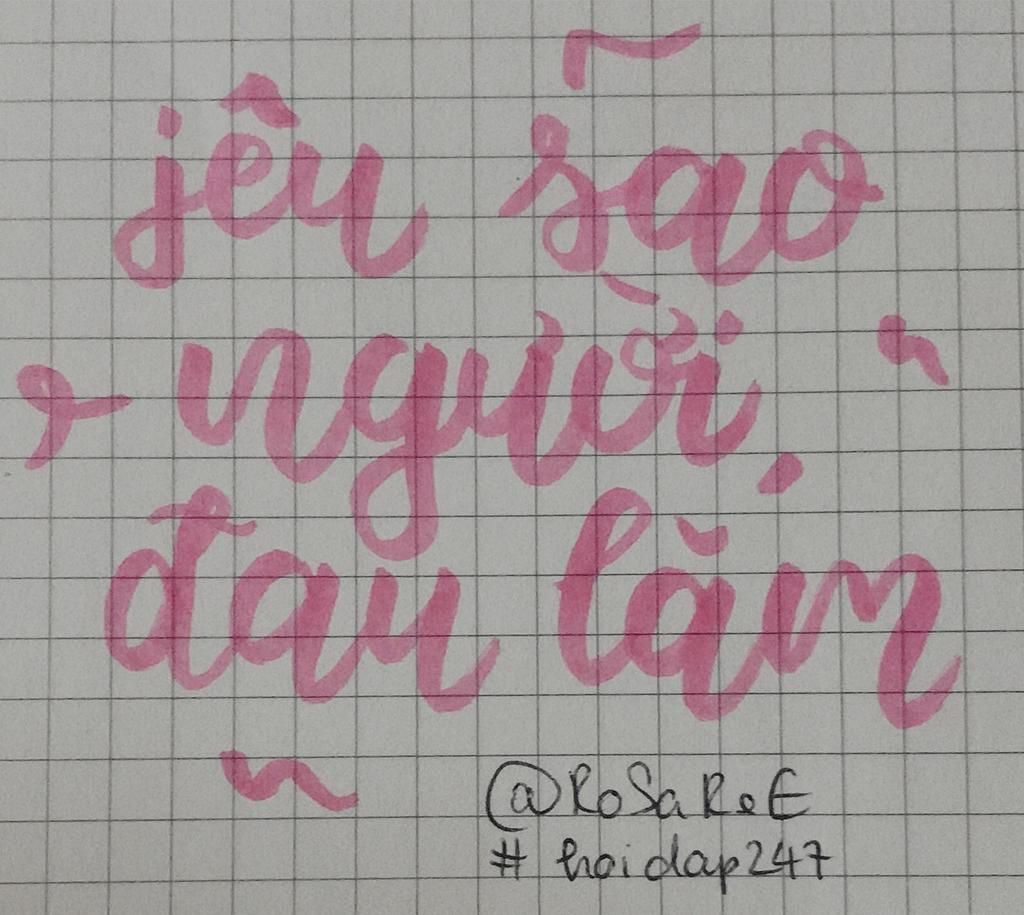 jêu sao
người
đau lắm
@RoSaReE
#hoidap247